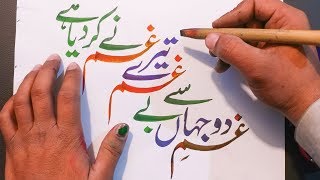 نے کر دیا ہے
تیرے غم
سے غم
غمِ دو جہاں سے بے